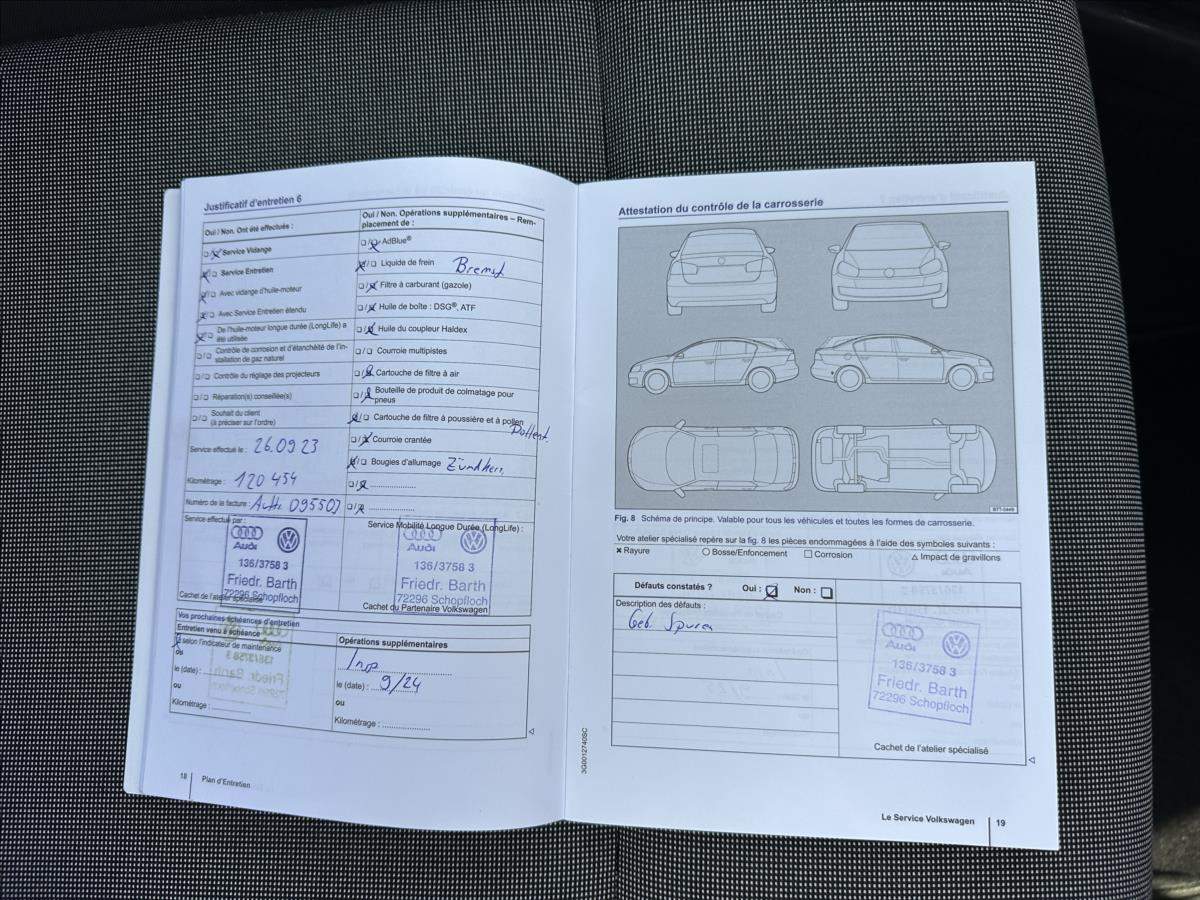 Justificatif d'entretien 6
Oui / Non. Ont été effectués :
Service Vidange
Service Entretien
Avec vidange d'huile-moteur
Avec Service Entretien étendu
De l'huile-moteur longue durée (LongLife) a
été utilisée
Contrôle de corrosion et d'étanchéité de l'in-
stallation de gaz naturel
Contrôle du réglage des projecteurs
Réparation(s) conseillée(s)
Souhait du client
(à préciser sur l'ordre)
Service effectué le : 26.09 23
Kilométrage : 120 454
Numéro de la facture :
Service effectué par :
Audi
136/3758 3
Friedr. Barth
72296 Schopfloch
Cachet de l'atelier spécialisé
Oui / Non. Opérations supplémentaires – Rem-
placement de :
AdBlue®
Liquide de frein Bremsf.
Filtre à carburant (gazole)
Huile de boîte : DSG®, ATF
Huile du coupleur Haldex
Courroie multipistes
Cartouche de filtre à air
Bouteille de produit de colmatage pour
pneus
Cartouche de filtre à poussière et à pollen
Courroie crantée
Bougies d'allumage
Service Mobilité Longue Durée (LongLife) :
Audi
136/3758 3
Friedr. Barth
72296 Schopfloch
Cachet du Partenaire Volkswagen
Vos prochaines échéances d'entretien
Entretien venu à échéance
selon l'indicateur de maintenance
ou
le (date) :
ou
Kilométrage :
Opérations supplémentaires
Insp
le (date) : 9/24
ou
Kilométrage :
18 Plan d'Entretien
Attestation du contrôle de la carrosserie
B7T-0449
Fig. 8 Schéma de principe. Valable pour tous les véhicules et toutes les formes de carrosserie.
Votre atelier spécialisé repère sur la fig. 8 les pièces endommagées à l'aide des symboles suivants :
Rayure Bosse/Enfoncement Corrosion Impact de gravillons
Défauts constatés ? Oui : Non :
Description des défauts :
Geb. Spuren
Audi
136/3758 3
Friedr. Barth
72296 Schopfloch
Cachet de l'atelier spécialisé
3G0012740SC
Le Service Volkswagen 19